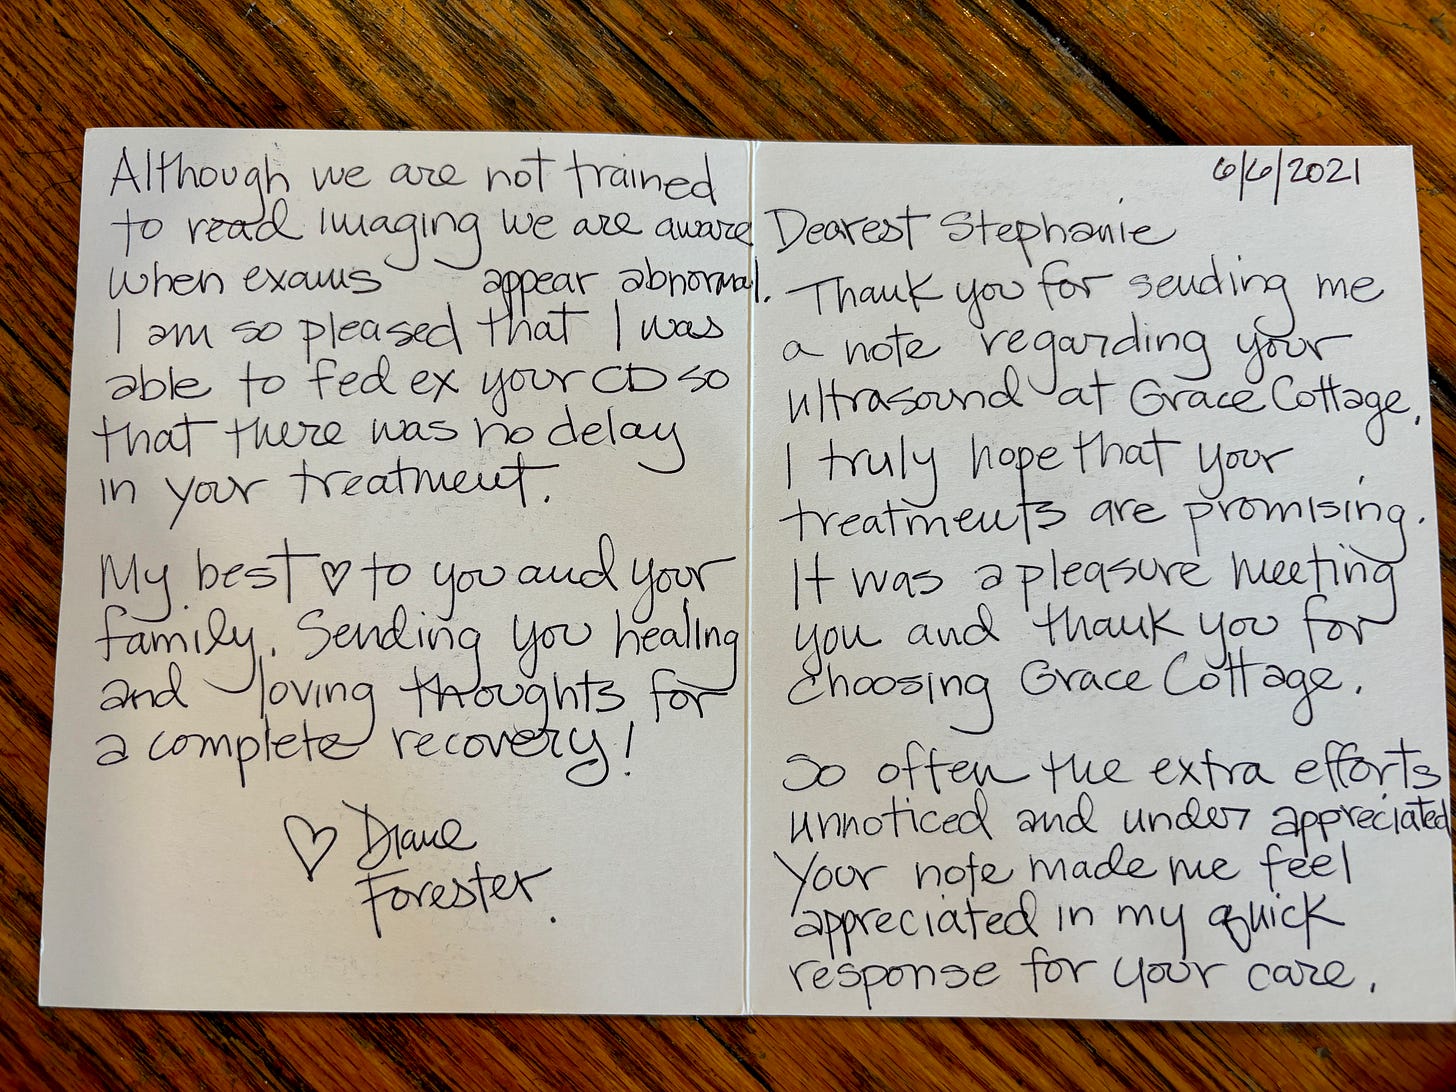 6/6/2021
Dearest Stephanie
Thank you for sending me
a note regarding your
ultrasound at Grace Cottage.
I truly hope that your
treatments are promising.
It was a pleasure meeting
you and thank you for
choosing Grace Cottage.
So often the extra efforts
unnoticed and under appreciated
Your note made me feel
appreciated in my quick
response for your care.
Although we are not trained
to read imaging we are aware
when exams appear abnormal.
I am so pleased that I was
able to fed ex your CD so
that there was no delay
in your treatment.
My best ♡ to you and your
family. Sending you healing
and loving thoughts for
a complete recovery!
♡ Diane
Forester.